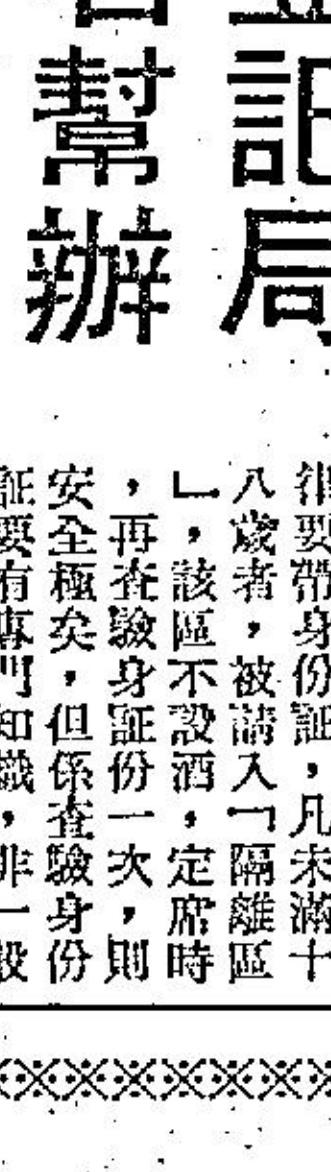 記局
幫辦
徂要帶身份証，凡未滿十
八歲者，被請入「隔離區
」，該區不設酒，定席時
，再查驗身証份一次，則
安全極矣，但係查驗身份
証要有專門知識，非一般